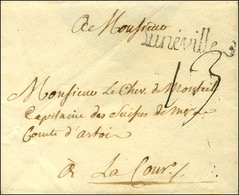 A Monsieur
Lunéville
13
Monsieur Le Chev. de Monteil
Capitaine des Suisses de Mgr
Comte d'artois
A La Cour.